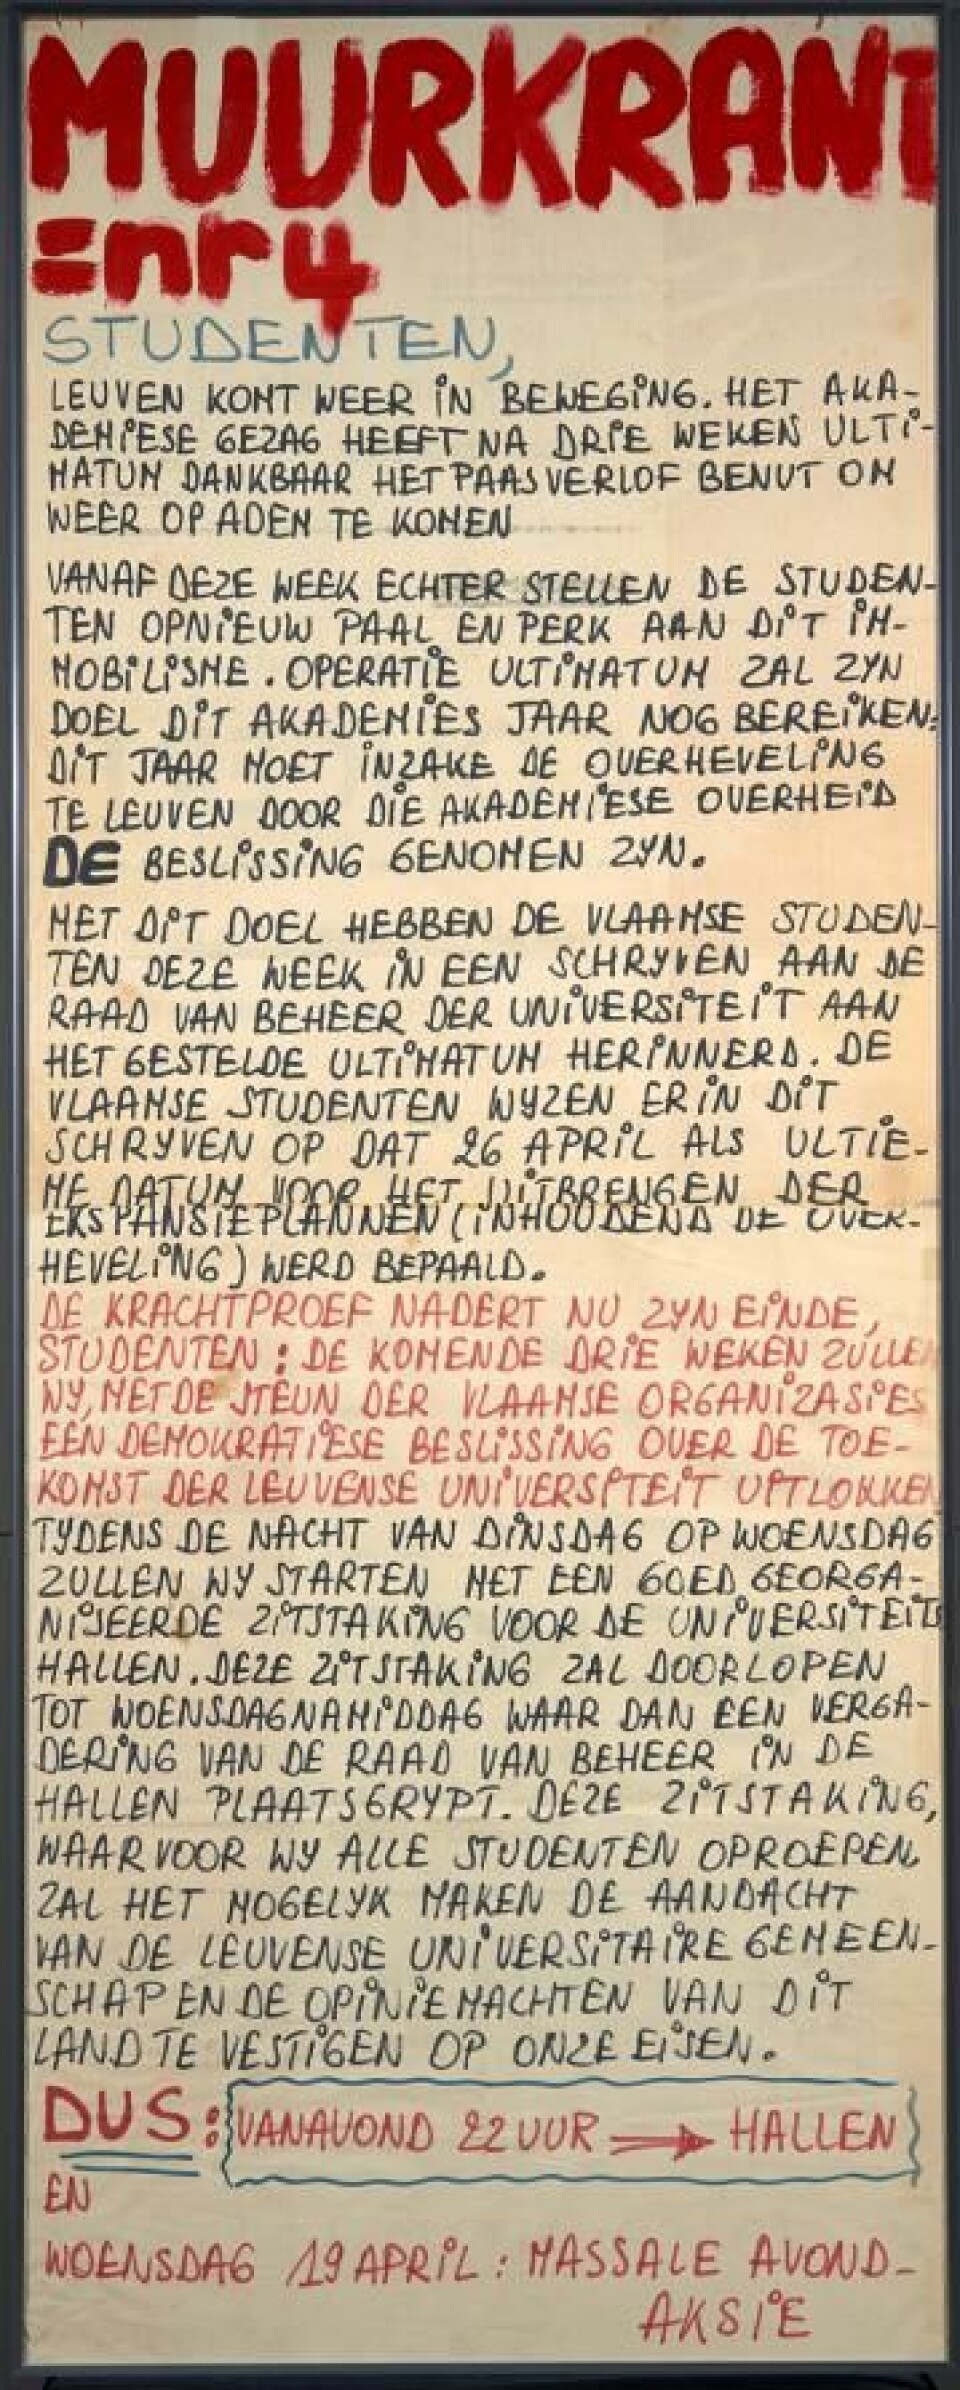 MUURKRANT
=nr4
STUDENTEN,
LEUVEN KOMT WEER IN BEWEGING. HET AKA-
DEMIESE GEZAG HEEFT NA DRIE WEKEN ULTI-
MATUM DANKBAAR HET PAASVERLOF BENUT OM
WEER OP ADEM TE KOMEN
VANAF DEZE WEEK ECHTER STELLEN DE STUDEN-
TEN OPNIEUW PAAL EN PERK AAN DIT IM-
MOBILISME. OPERATIE ULTIMATUM ZAL ZYN
DOEL DIT AKADEMIES JAAR NOG BEREIKEN:
DIT JAAR MOET INZAKE DE OVERHEVELING
TE LEUVEN DOOR DIE AKADEMIESE OVERHEID
DE BESLISSING GENOMEN ZYN.
MET DIT DOEL HEBBEN DE VLAAMSE STUDEN-
TEN DEZE WEEK IN EEN SCHRYVEN AAN DE
RAAD VAN BEHEER DER UNIVERSITEIT AAN
HET GESTELDE ULTIMATUM HERINNERD. DE
VLAAMSE STUDENTEN WYZEN ER IN DIT
SCHRYVEN OP DAT 26 APRIL ALS ULTIE-
ME DATUM VOOR HET UITBRENGEN DER
EKSPANSIEPLANNEN (INHOUDEND DE OVER-
HEVELING) WERD BEPAALD.
DE KRACHTPROEF NADERT NU ZYN EINDE,
STUDENTEN: DE KOMENDE DRIE WEKEN ZULLEN
WY, MET DE STEUN DER VLAAMSE ORGANIZASIES
EEN DEMOKRATIESE BESLISSING OVER DE TOE-
KOMST DER LEUVENSE UNIVERSITEIT UITLOKKEN
TYDENS DE NACHT VAN DINSDAG OP WOENSDAG
ZULLEN WY STARTEN MET EEN GOED GEORGA-
NISEERDE ZITSTAKING VOOR DE UNIVERSITEITS
HALLEN. DEZE ZITSTAKING ZAL DOORLOPEN
TOT WOENSDAGNAMIDDAG WAAR DAN EEN VERGA-
DERING VAN DE RAAD VAN BEHEER IN DE
HALLEN PLAATSGRYPT. DEZE ZITSTAKING,
WAARVOOR WY ALLE STUDENTEN OPROEPEN,
ZAL HET MOGELYK MAKEN DE AANDACHT
VAN DE LEUVENSE UNIVERSITAIRE GEMEEN-
SCHAP EN DE OPINIEMACHTEN VAN DIT
LAND TE VESTIGEN OP ONZE EISEN.
DUS: VANAVOND 22 UUR → HALLEN
EN
WOENSDAG 19 APRIL: MASSALE AVOND-
AKSIE